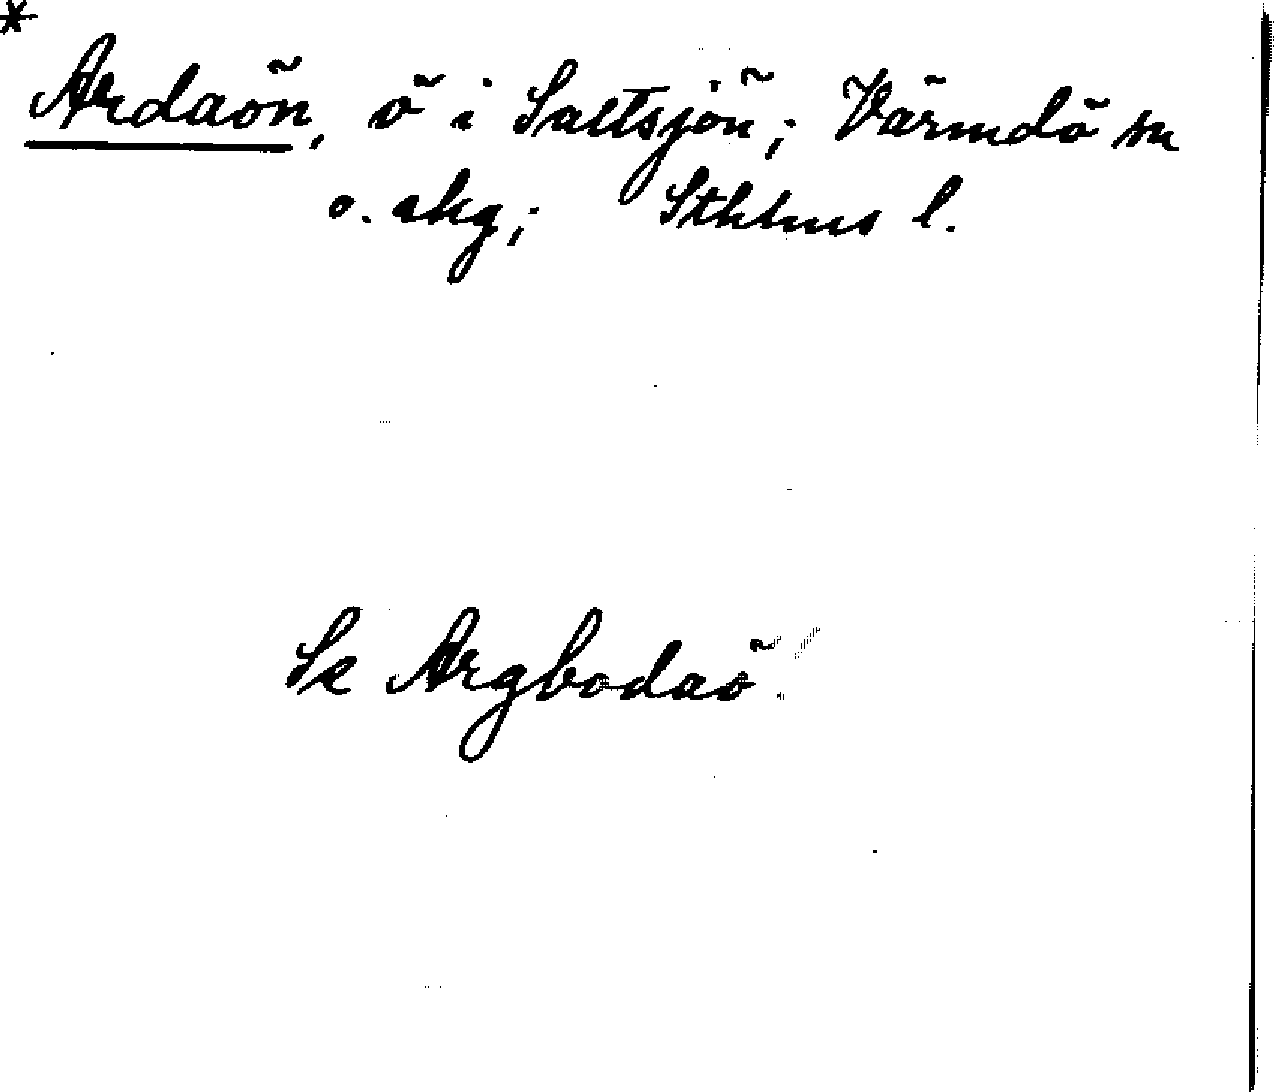 *
Ardaön, ö i Saltsjön; Värmdö sn
o. skg; Sthlms l.
Se Argbodaö!